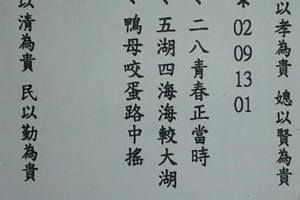 以孝為貴 媳以賢為貴
*02 09 13 01
、二八青春正當時
、五湖四海海較大湖
、鴨母咬蛋路中搖
以清為貴 民以勤為貴